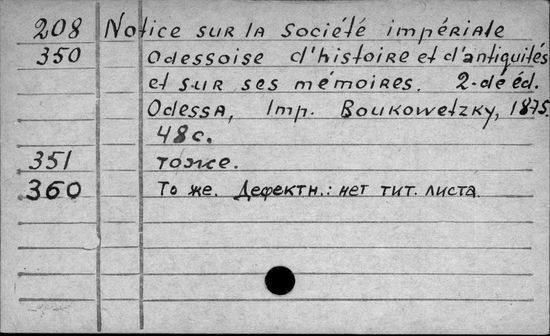 208 Notice sur la Société impériale
350 Odessoise d'histoire et d'antiquités
et sur ses mémoires. 2-de éd.
Odessa, Imp. Boukowetzky, 1875.
48 с.
351 тоже.
360 То же. Дефектн.: нет тит. листа